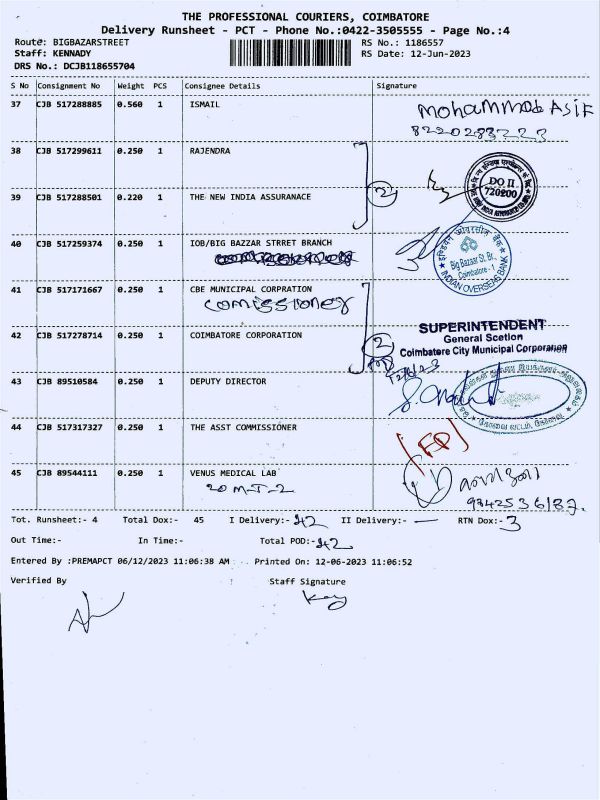 THE PROFESSIONAL COURIERS, COIMBATORE
Delivery Runsheet - PCT - Phone No.:0422-3505555 - Page No.:4
Route: BIGBAZARSTREET RS No.: 1186557
Staff: KENNADY RS Date: 12-Jun-2023
DRS No.: DCJB118655704
S No Consignment No Weight PCS Consignee Details Signature
37 CJB 517288885 0.560 1 ISMAIL Mohammad Asif
8220283223
38 CJB 517299611 0.250 1 RAJENDRA
DO II
720200
2
39 CJB 517288501 0.220 1 THE NEW INDIA ASSURANACE
40 CJB 517259374 0.250 1 IOB/BIG BAZZAR STRRET BRANCH
Big Bazaar St. Br.,
Coimbatore - 1
INDIAN OVERSEAS BANK
41 CJB 517171667 0.250 1 CBE MUNICIPAL CORPRATION
Comissioner
42 CJB 517278714 0.250 1 COIMBATORE CORPORATION
2
SUPERINTENDENT
General Scetion
Coimbatore City Municipal Corporation
43 CJB 89510584 0.250 1 DEPUTY DIRECTOR
44 CJB 517317327 1 THE ASST COMMISSIONER
45 CJB 89544111 0.250 1 VENUS MEDICAL LAB
20 M-T-2
9342536187.
Tot. Runsheet:- 4 Total Dox:- 45 I Delivery:- 42 II Delivery:- — RTN Dox:- 3
Out Time:- In Time:- Total POD:- 42
Entered By :PREMAPCT 06/12/2023 11:06:38 AM Printed On: 12-06-2023 11:06:52
Verified By Staff Signature